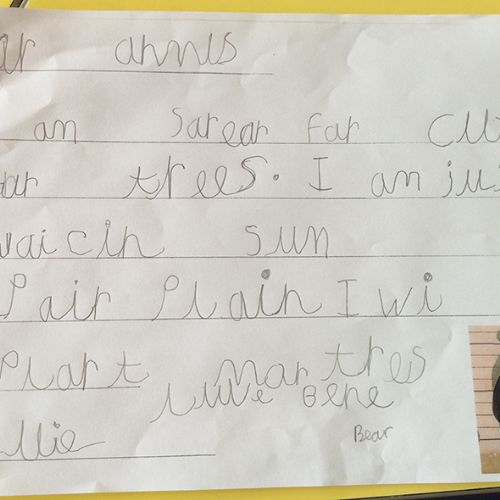 ar annis
an Sarear far cut
tar trees. I an jus
waicin sun
Pair Plain I wi
Plart mar tres
luve Bene
llie
Bear